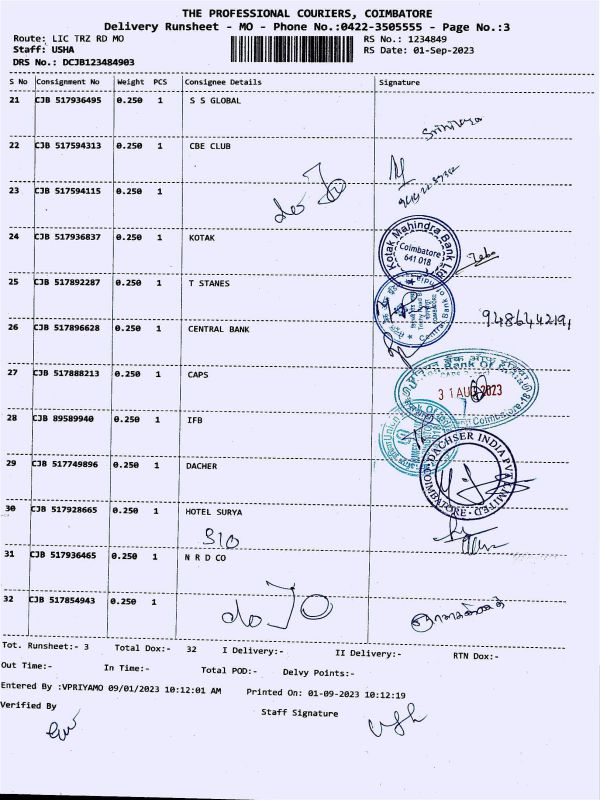 THE PROFESSIONAL COURIERS, COIMBATORE
Delivery Runsheet - MO - Phone No.:0422-3505555 - Page No.:3
Route: LIC TRZ RD MO
RS No.: 1234849
Staff: USHA
RS Date: 01-Sep-2023
DRS No.: DCJB123484903
S No Consignment No Weight PCS Consignee Details Signature
21 CJB 517936495 0.250 1 S S GLOBAL
22 CJB 517594313 0.250 1 CBE CLUB
23 CJB 517594115 0.250 1
24 CJB 517936837 0.250 1 KOTAK
Kotak Mahindra Bank Ltd
Coimbatore
641 018
25 CJB 517892287 0.250 1 T STANES
26 CJB 517896628 0.250 1 CENTRAL BANK
Central Bank
27 CJB 517888213 0.250 1 CAPS
31 AUG 2023
Coimbatore-18
28 CJB 89589940 0.250 1 IFB
29 CJB 517749896 0.250 1 DACHER
DACHSER INDIA PVT. LIMITED
COIMBATORE
30 CJB 517928665 0.250 1 HOTEL SURYA
31 CJB 517936465 0.250 1 N R D CO
32 CJB 517854943 0.250 1
Tot. Runsheet:- 3 Total Dox:- 32 I Delivery:- II Delivery:- RTN Dox:-
Out Time:- In Time:- Total POD:- Delvy Points:-
Entered By :VPRIYAMO 09/01/2023 10:12:01 AM Printed On: 01-09-2023 10:12:19
Verified By Staff Signature